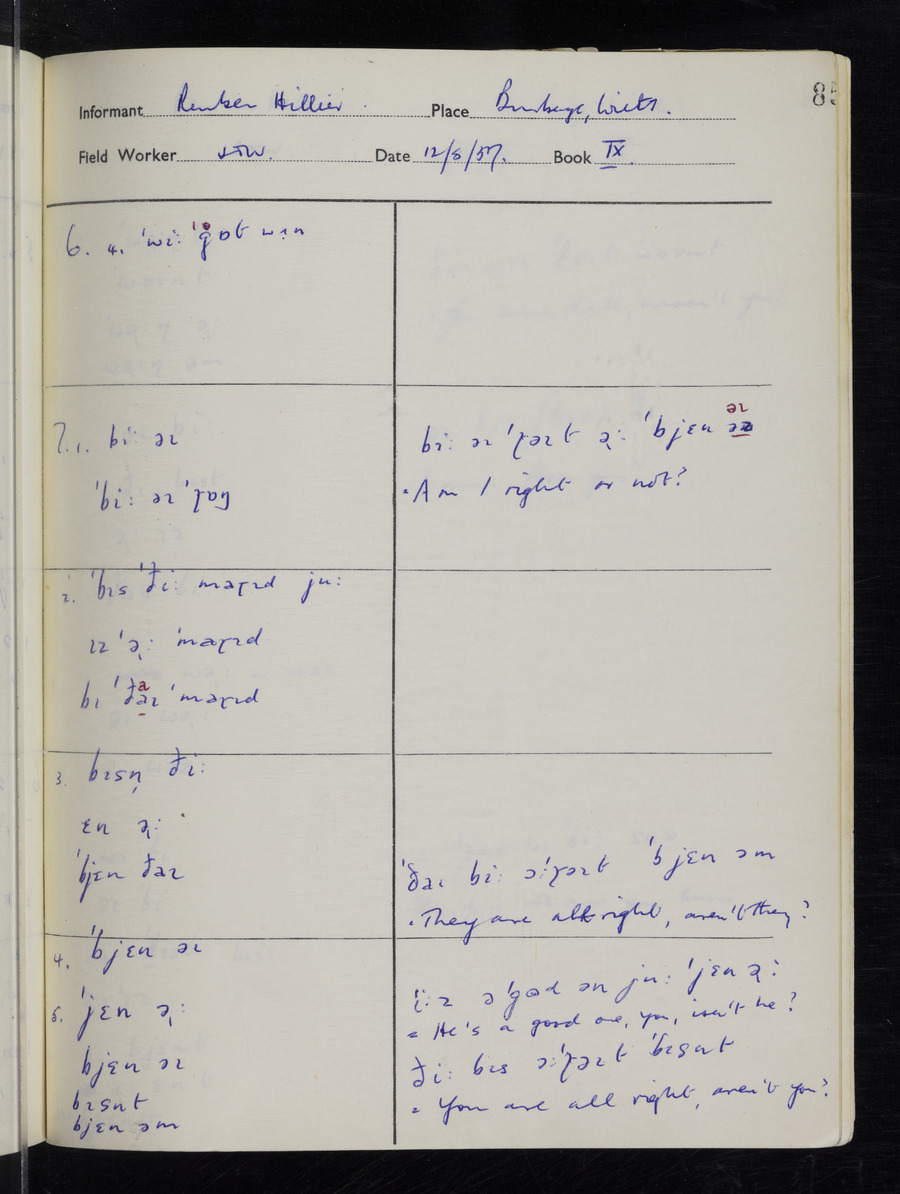 85
Informant Reuben Hillier. Place Burbage, Wilts.
Field Worker Date 12/8/57. Book IX.
6. 4. ˈwiː ˈgɒt
7.1. biː əɪ
ˈbiː əɪ
biː əɪ ˈɽəɪt əɽː ˈbjen əɪ
= Am I right or not?
2. ˈbɪs ˈðiː maɽɪd juː
ɪz ˈəɽː ˈmaɽɪd
bɪ ˈðaɪ ˈmaɽɪd
3. bɪsn̩ ðiː
ɛn əɽː
ˈbjɛn ðaɪ
ˈðaɪ biː əːɽəɪt ˈbjɛn əm
= They are all right, aren't they?
4. ˈbjɛn əɪ
5. ˈjɛn əɽː
bjɛn əɪ
bɪsnt
bjɛn əm
iːz əˈgəd ən juː ˈjɛn əɽː
= He's a good one, you, isn't he?
ðiː bɪs əːˈɽəɪt ˈbɪsnt
= You are all right, aren't you?